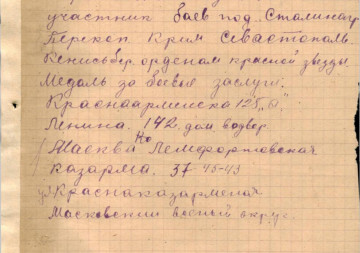 участник боев под Сталингр
Перекоп Крим Севастополь
орденом красной звезды
Медаль за боевые заслуг.
Красноармейска 125 "ы"
Ленина. 142. дом
Москви № Лемфортовская
казарма. 37 45-43
ул Красноказарменая
Московский военый округ